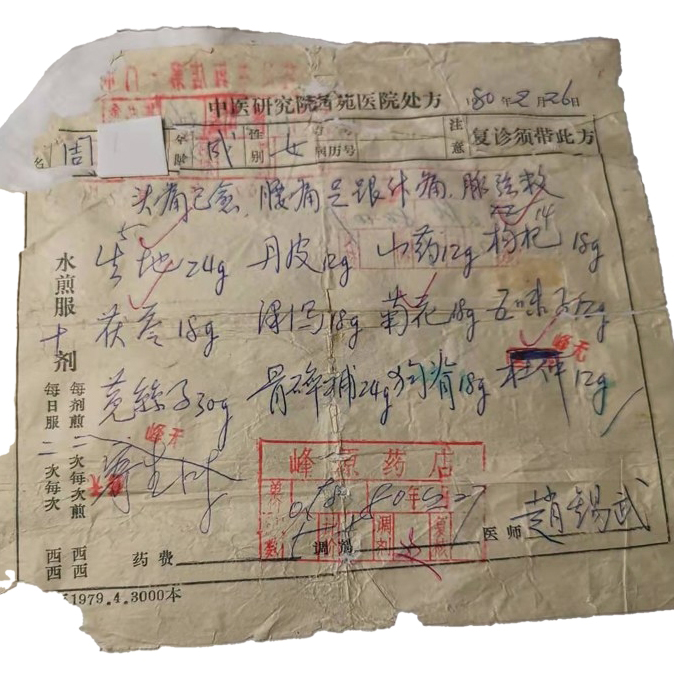 中医研究院西苑医院处方 1980年2月26日
姓名 周 年龄 成 性别 女 病历号 注意 复诊须带此方
头痛已愈，腰痛足跟外痛，脉弦数
生地24g 丹皮12g 山药12g 枸杞18g
茯苓18g 泽泻18g 菊花18g 五味子12g
菟丝子30g 骨碎补24g 狗脊18g 杜仲12g
峰无
峰无
寄生
水煎服 十剂
每日服 二 次每次 西西
每剂煎 二 次每次煎 西西
峰原药店
药费 调剂 医师 赵锡武
1979.4.3000本